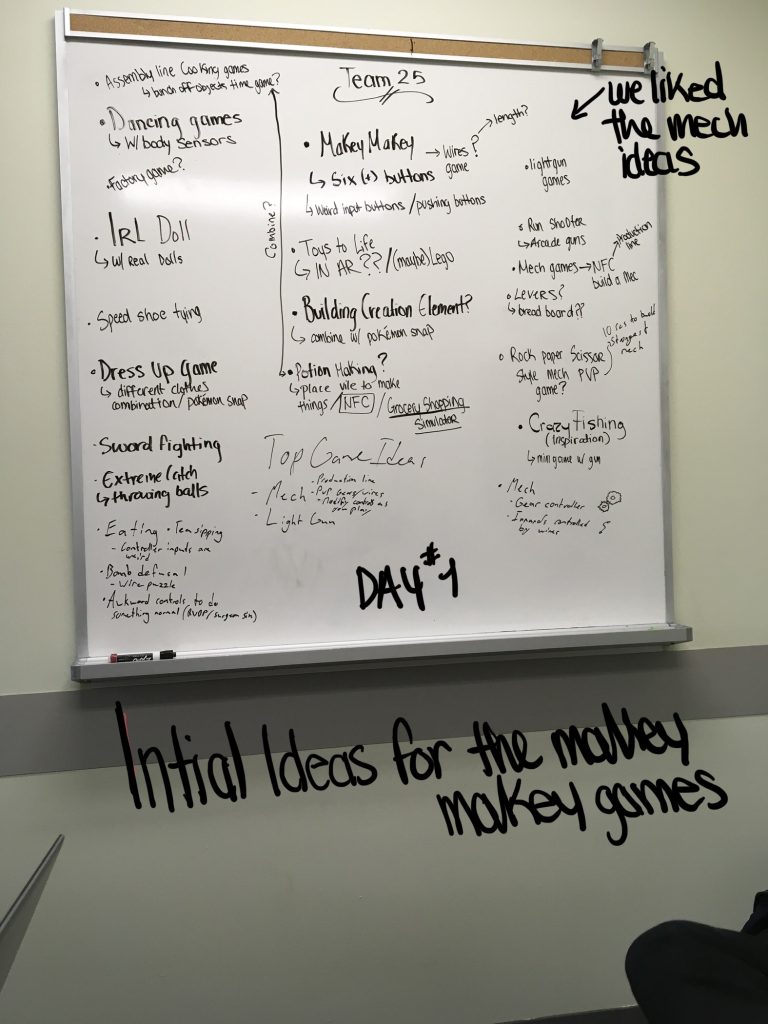 Team 25
• Assembly line Cooking games
↳ bunch off objects time game?
• Dancing games
↳ W/ body sensors
• Factory game?
• IRL Doll
↳ w/ real Dolls
• Speed shoe tying
• Dress Up Game
↳ different clothes
combination / pokémon snap
• Sword fighting
• Extreme Catch
↳ throwing balls
• Eating • Tea sipping
- Controller inputs are
weird
• Bomb defusal
- Wire puzzle
• Awkward controls to do
something normal (QWOP/surgeon sim)
Combine?
• Makey Makey → Wires? → length?
game
↳ Six (+) buttons
↳ Weird input buttons / pushing buttons
• Toys to Life
↳ IN AR?? / (maybe) Lego
• Building Creation Element?
↳ combine w/ pokémon snap
• Potion Making?
↳ place vile to make
things / NFC / Grocery Shopping
Simulator
Top Game Ideas
- Mech
- Production line
- PvP Gears/wires
- Modify controls as
you play
- Light Gun
• lightgun
games
• Run Shooter
↳ Arcade guns
• Mech games → NFC → production
line
build a mec
• Levers?
↳ bread board??
• Rock paper Scissor
Style mech PVP
game?
10 secs to build
strongest
mech
• Crazy Fishing
(Inspiration)
↳ mini game w/ gun
• Mech
- Gear controller
- Innards controlled
by wires
DAY #1
we liked
the mech
ideas
Intial Ideas for the makey
makey games